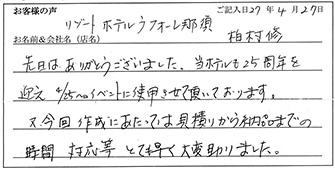 お客様の声 ご記入日27年4月27日
リゾートホテルラフォーレ那須
お名前&会社名(店名) 柏村修
先日はありがとうございました、当ホテルも25周年を
迎え 4/25〜のイベントに使用させて頂いております。
又今回作成にあたっては見積りから納品までの
時間 対応等 とても早く大変助かりました。